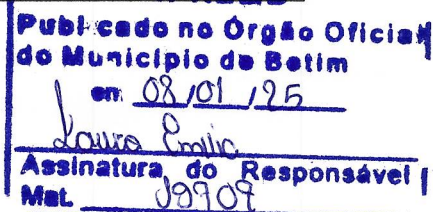 Publicado no Órgão Oficial
do Município de Betim
em 08/01/25
Laura Emilia
Assinatura do Responsável
Mat.